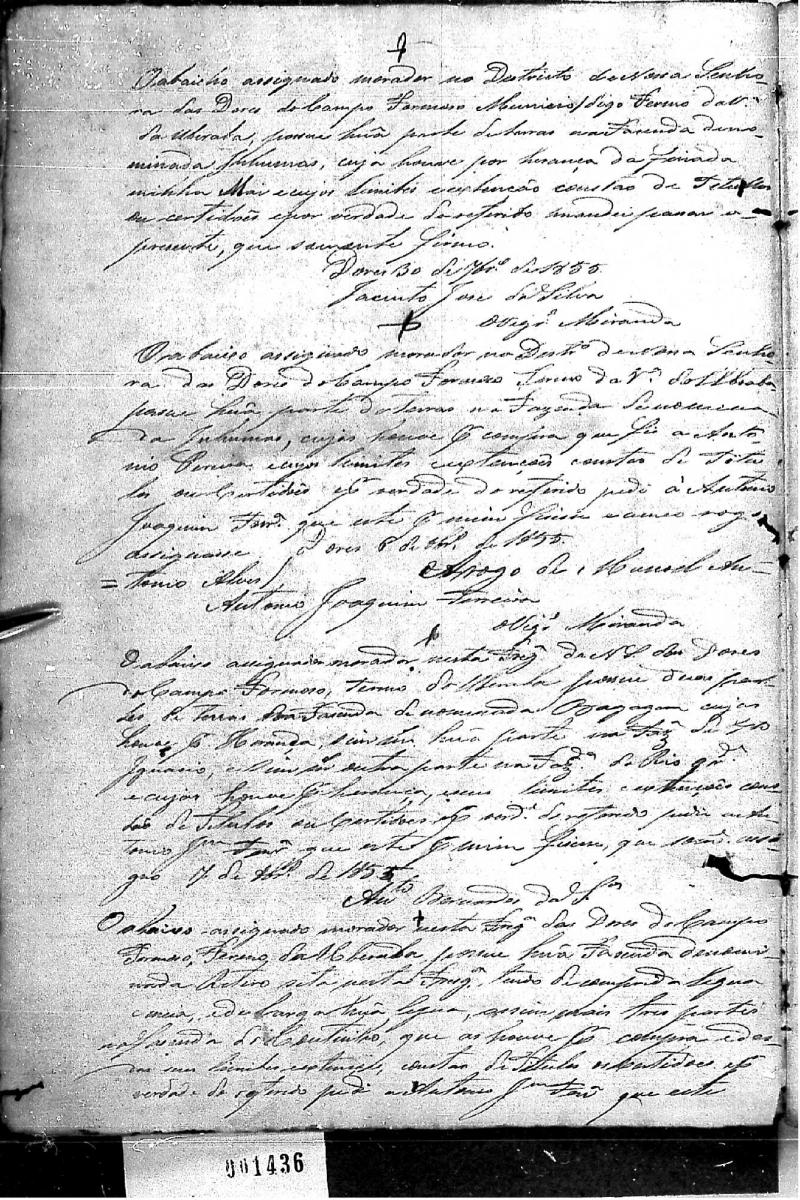 O abaicho assignado morador no Destricto de Nossa Senho-
ra das Dores do Campo Formoso Municio/digo Termo da Vª
da Uberaba, possue huã parte de terras na Fazenda deno-
minada Inhumas, cuja houve por herança da finada
minha Mai e cujos limites e extenção constão de Titullos
ou certidois e por verdade do referido mandei passar o
presente, que somente firmo.
Dores 30 de 7brº de 1855
Jacinto Jose da Silva
O Vigrº Miranda
O abaixo assignado morador no Destrº de Nossa Senho
ra das Dores do Campo Formozo Termo da Vª do Ubraba
possue huã parte de terras na Fazenda denomina
da Inhumas, cujas houve p compra que fis a Anto-
nio Pereira e cujos limites e extencois constão de Titu-
los ou Certidois e p verdade do referido pedi á Antonio
Joaquim Ferrª que este p mim fizesse e a meu rogo
assignasse Dores 6 de 8brº de 1855
Arogo de Manoel An-
= tonio Alves
Antonio Joaquim Ferreira
O Vigrº Miranda
O abaixo assignado morador nesta Fregª de N S das Dores
do Campo Formoso, termo do Uberaba possue duas par-
tes de terras na Fazenda denominada Bagagem cujas
houve p Herança, huã parte na Fazª de
Ignacio, outra parte na Fazª do Rio grdª
e cujas houve p herança, seus limites e extenções cons
tão de Titulos ou Certidois e p verdª do referido pedi a An
tonio Jm Ferrª que este p mim fizesse, que assi-
gno 7 de 8brº de 1855
Antº Bernardes da Sª
O abaixo assignado morador nesta Fregª das Dores do Campo
Formoso, Termo da Uberaba, possue huã Fazenda denomi
nada Retiro sita nesta Fregª, tendo de comprido legua
e meia, e de largo huã legua, assim mais tres partes
na fazenda do Coutinho, que as houve p compra e de
seus limites e extenções, constão de Titulos ou Certidoes e p
verdade do referido pedi a Antonio Jm Ferrª que este
001436